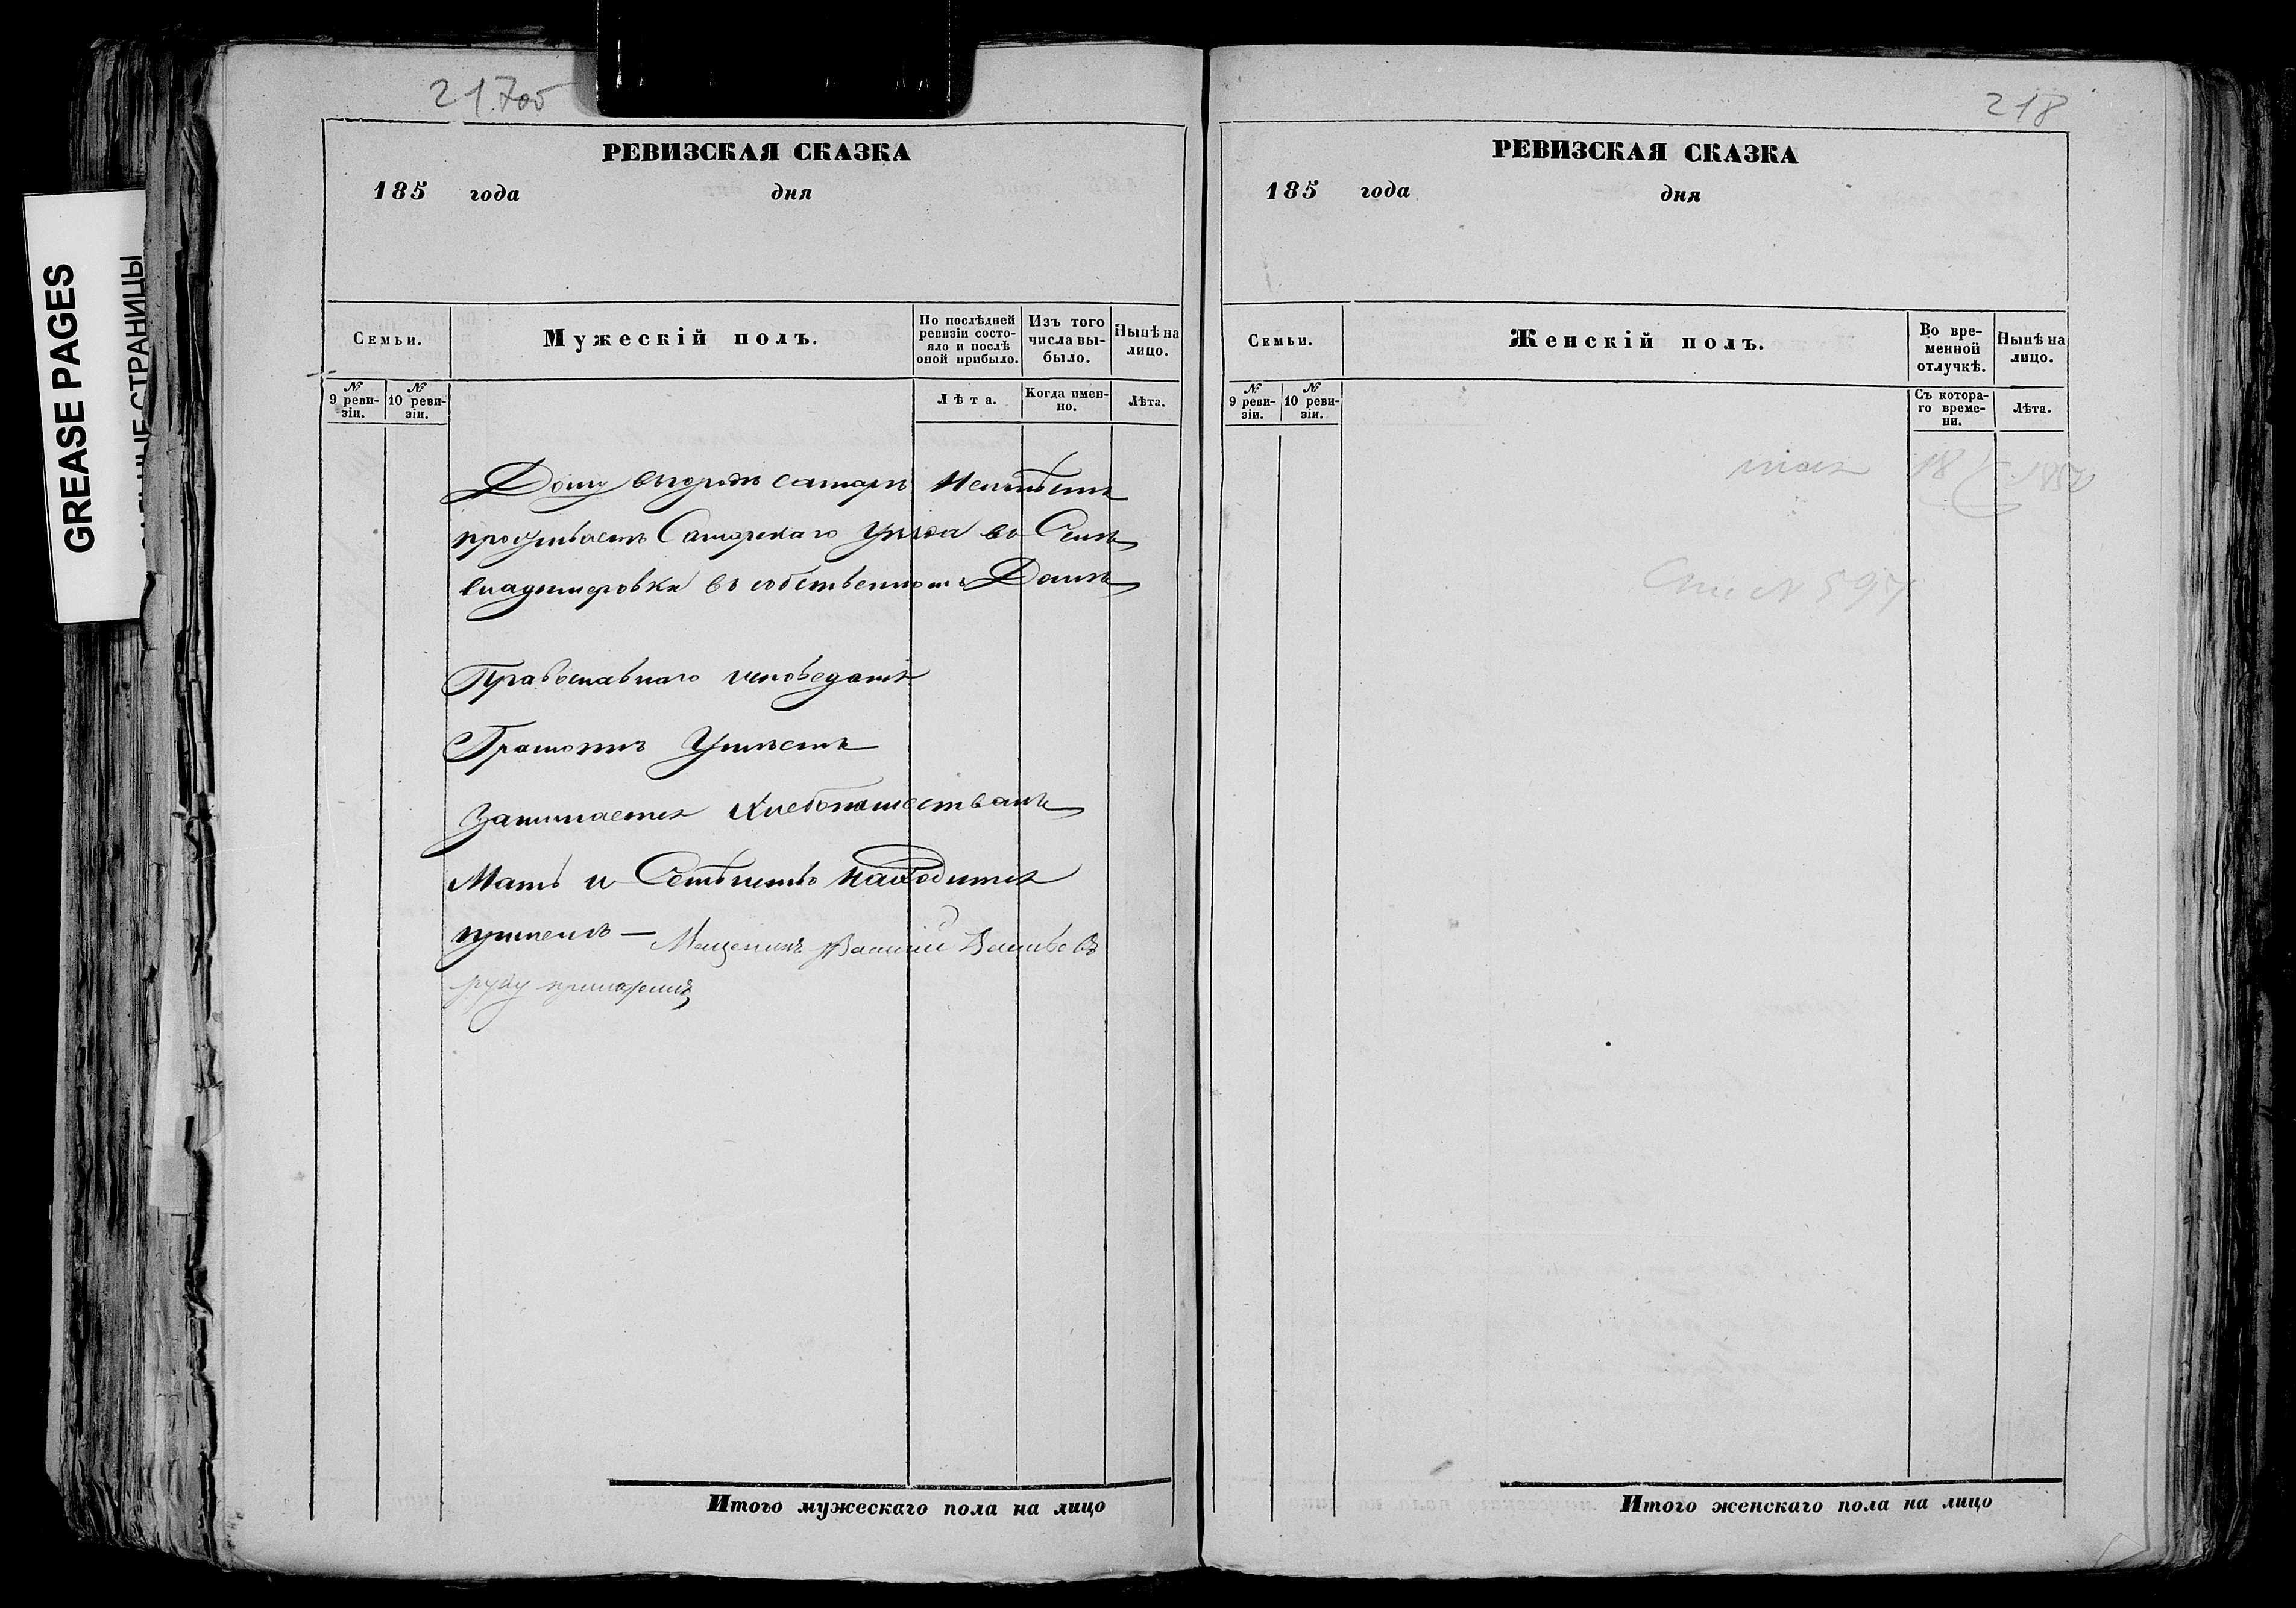 217об
РЕВИЗСКАЯ СКАЗКА
185 года дня
Семьи.
Мужескій полъ.
По послѣдней ревизіи состояло и послѣ оной прибыло.
Изъ того числа выбыло.
Нынѣ на лицо.
№ 9 ревизіи.
№ 10 ревизіи.
Лѣта.
Когда именно.
Лѣта.
Дому въ городѣ самарѣ неимѣетъ
проживаетъ Самарскаго Уѣзда въ Селѣ
владимеровки въ собственномъ Домѣ
Православнаго исповеданія
Грамотѣ Умѣетъ
Занимается Хлебопашествамъ
Мать и Семѣйство находится
принемъ — Мещенинъ Василий
руку приложилъ
Итого мужескаго пола на лицо
218
РЕВИЗСКАЯ СКАЗКА
185 года дня
Семьи.
Женскій полъ.
Во временной отлучкѣ.
Нынѣ на лицо.
№ 9 ревизіи.
№ 10 ревизіи.
Съ котораго времени.
Лѣта.
Итого женскаго пола на лицо
GREASE PAGES
СТРАНИЦЫ